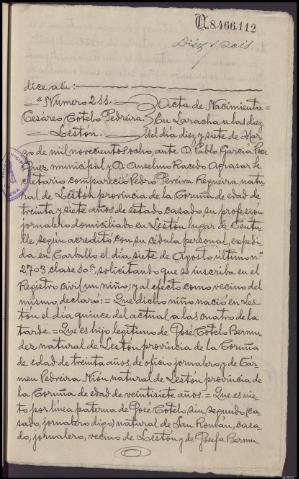 N.8466.112
dice asi:
"Numero 288. Acta de Nacimiento =
Cesáreo Cotelo Pedreira. En Laracha a las diez
Lestón. del dia diez y siete de Mar-
zo de mil novecientos ocho, ante D. Pablo García
municipal y D. Anselmo Racedo Se-
cretario compareció Pedro Pereira Regueira, natu-
ral de Lestón provincia de la Coruña de edad de
treinta y siete años de estado casado su profesion
jornalero domiciliado en Lestón lugar de
lle segun acredita con su cédula personal, expedi-
da en Carballo el dia siete de Agosto último nº
2708 clase 10ª, solicitando que se inscriba en el
Registro civil un niño; y al efecto como vecino del
mismo declaró: = Que dicho niño nació en Les-
tón el dia quince del actual a las cuatro de la
tarde. = Que es hijo legitimo de José Cotelo Bermu-
dez natural de Lestón provincia de la Coruña
de edad de treinta años, de oficio jornalero y de Car-
men Pedreira Mión natural de Lestón provincia de
la Coruña de edad de veintisiete años. = Que es nie-
to por linea paterna de José Cotelo, sin segundo, ca-
sado, jornalero digo natural de San Román, casa-
do, jornalero, vecino de Lestón y de Josefa Bermu-